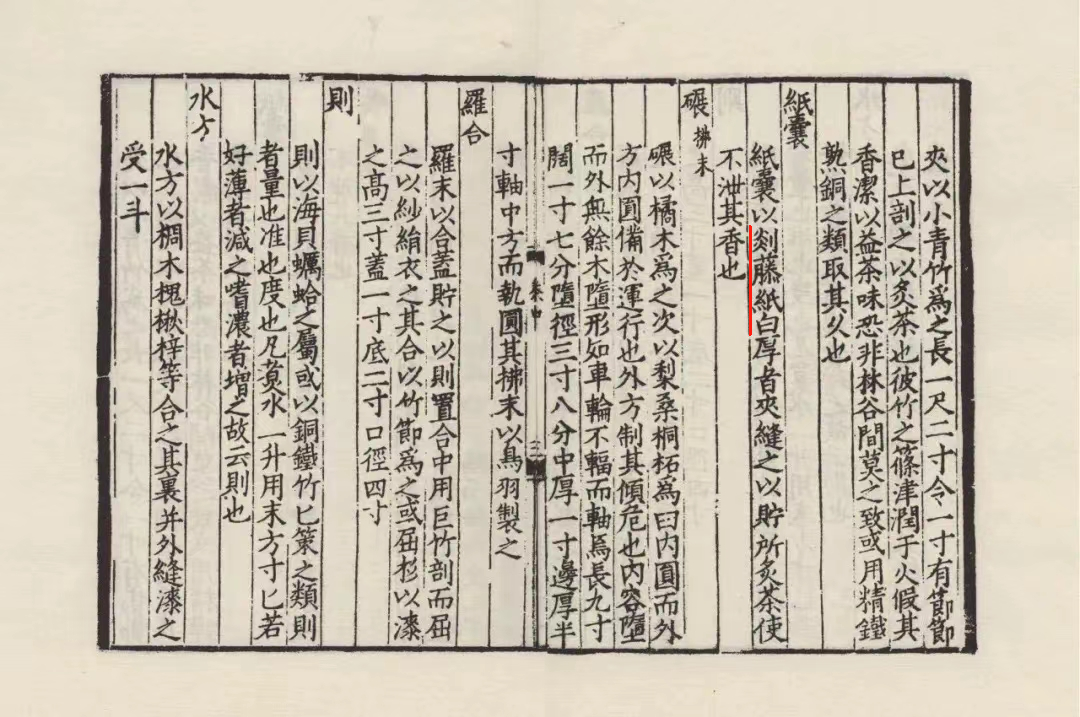 夾以小青竹爲之長一尺二寸令一寸有節節
已上剖之以炙茶也彼竹之篠津潤于火假其
香潔以益茶味恐非林谷間莫之致或用精鐵
熟銅之類取其久也
紙囊
紙囊以剡藤紙白厚者夾縫之以貯所炙茶使
不泄其香也
碾拂末
碾以橘木爲之次以梨桑桐柘爲臼內圓而外
方內圓備於運行也外方制其傾危也內容墮
而外無餘木墮形如車輪不輻而軸焉長九寸
闊一寸七分墮徑三寸八分中厚一寸邊厚半
茶中
寸軸中方而執圓其拂末以鳥羽製之
羅合
羅末以合蓋貯之以則置合中用巨竹剖而屈
之以紗絹衣之其合以竹節爲之或屈杉以漆
之高三寸蓋一寸底二寸口徑四寸
則
則以海貝蠣蛤之屬或以銅鐵竹匕策之類則
者量也准也度也凡煑水一升用末方寸匕若
好薄者減之嗜濃者增之故云則也
水方
水方以椆木槐楸梓等合之其裏并外縫漆之
受一斗